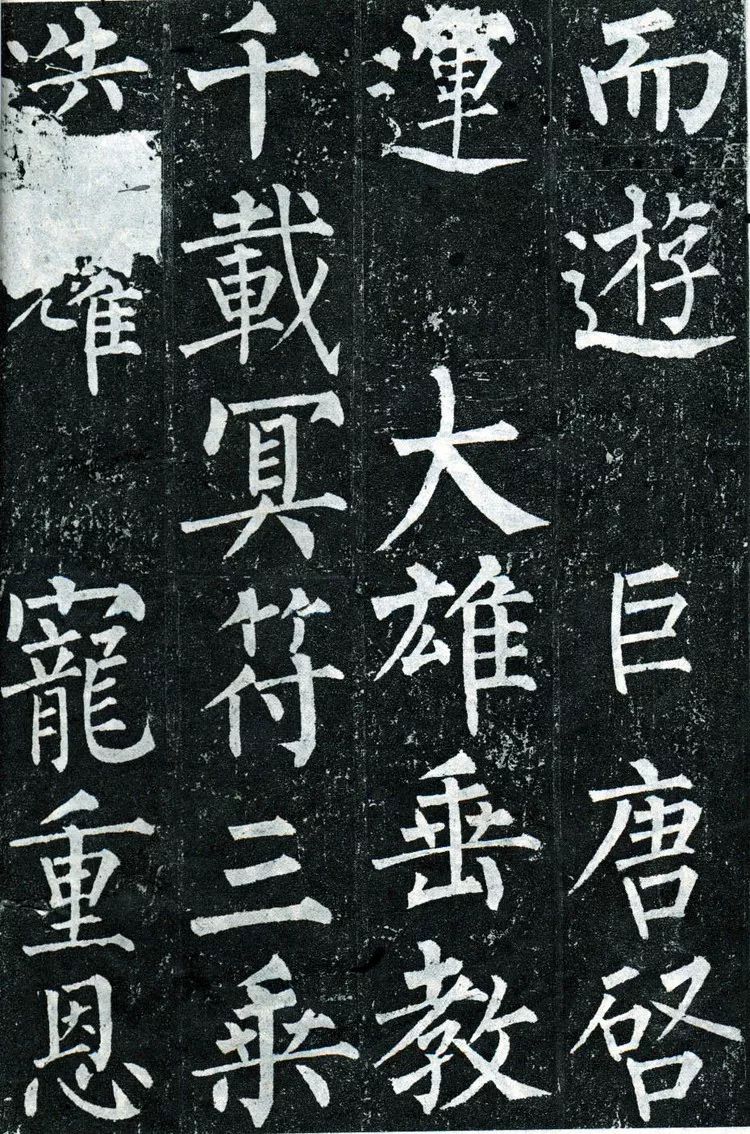 而遊 巨唐啓
運 大雄垂教
千載冥符三乘
寵重恩